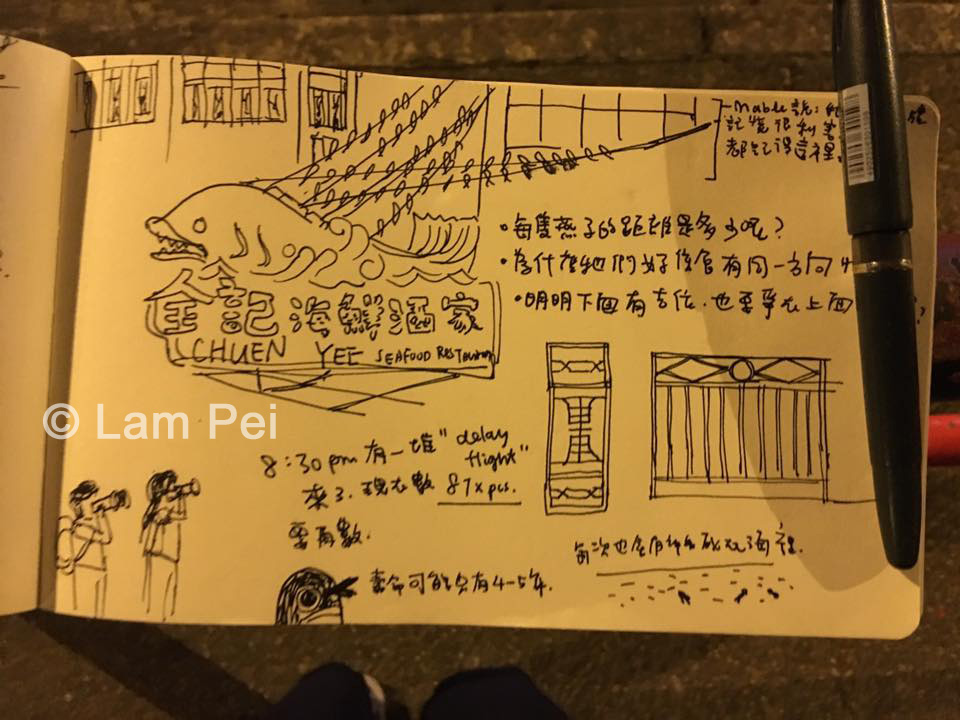 Mable說:
記憶很利害
都記得這裡。
•每隻燕子的距離是多少呢?
•為什麼牠們好像會有同一方向
•明明下面有吉位,也要爭在上面
?
全記海鮮酒家
CHUEN YEE SEAFOOD RESTaurant
© Lam Pei
8:30pm 有一堆"delay flight"
來了,現在數 87x pcs.
要再數.
每次也會
壽命可能只有4-5年.